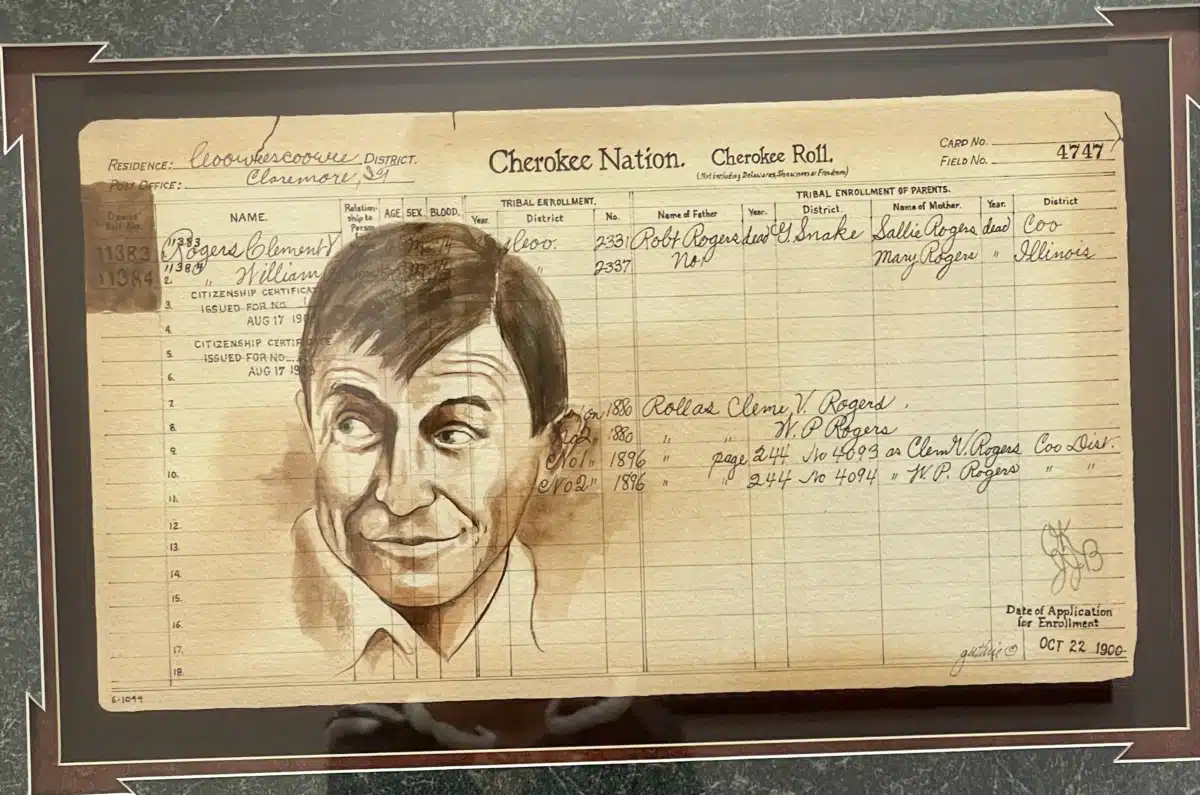 RESIDENCE: Cooweescoowee DISTRICT.
POST OFFICE: Claremore, IT
Cherokee Nation. Cherokee Roll.
(Not including Delawares, Shawnees or Freedmen)
CARD NO.
FIELD NO. 4747
TRIBAL ENROLLMENT. TRIBAL ENROLLMENT OF PARENTS.
NAME. Relation-ship to Person AGE SEX. BLOOD. Year. District No. Name of Father Year. District. Name of Mother. Year. District
11383 11383 Rogers Clement V Coo. 2331 Robt Rogers dead G Snake Sallie Rogers dead Coo
11384 11384 2. " William " 2337 No1 Mary Rogers " Illinois
CITIZENSHIP CERTIFICAT
3. ISSUED FOR NO. 1
AUG 17 190
4.
CITIZENSHIP CERTIFICATE
5. ISSUED FOR NO.
AUG 17 1903
6.
7. on 1880 Roll as Clem. V. Rogers
8. No2 " 1880 " " W. P Rogers
9. No1 " 1896 " page 244 No 4093 as Clem V. Rogers Coo Dist.
10. No2 " 1896 " " 244 No 4094 " W. P. Rogers " "
11.
12.
13.
14.
15.
16.
17.
18.
Date of Application
for Enrollment
OCT 22 1900
guthrie ©
6-1044